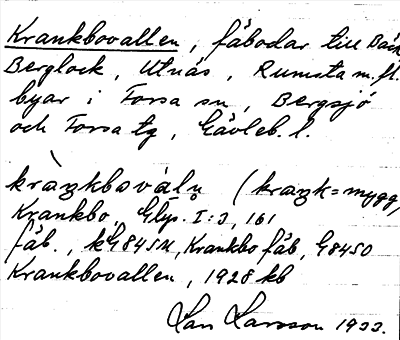 Krankbovallen, fäbodar till Bäck,
Berglock, Utnäs, Rumsta m.fl.
byar i Forsa sn, Bergsjö
och Forsa tg, Gävleb. l.
(krank = mygg)
Krankbo, Glys. I:3, 161
fäb., Krankbo fäb, G8450
Krankbovallen, 1928 kb
Lars Larsson 1933.